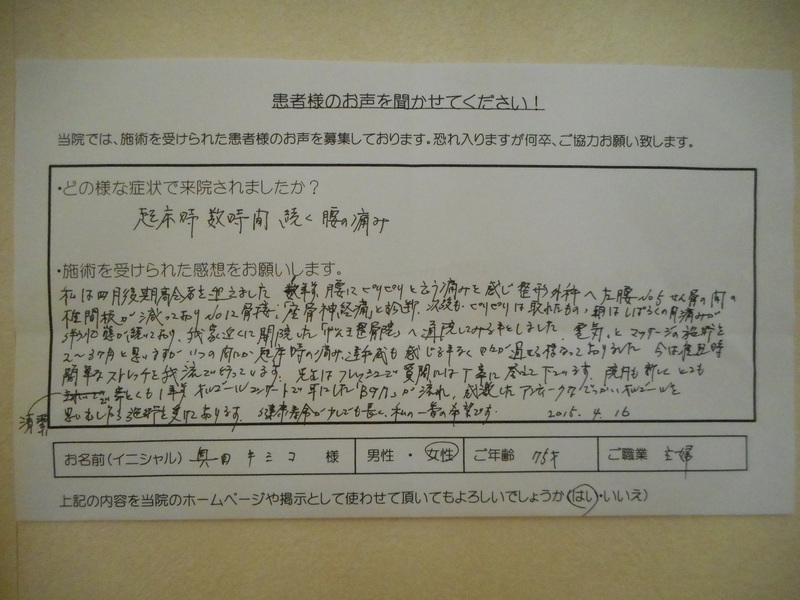 患者様のお声を聞かせてください！
当院では、施術を受けられた患者様のお声を募集しております。恐れ入りますが何卒、ご協力お願い致します。
・どの様な症状で来院されましたか？
起床時 数時間 続く 腰の痛み
・施術を受けられた感想をお願いします。
私は四月後期高令者を迎えました 数年来 腰にピリピリと言う痛みを感じ 整形外科へ 左腰 No5 せん骨の間の
椎間板が減っており No1に骨接 「座骨神経痛」と診断、 ピリピリは取れたもの、朝はしばらくの間痛みが
続いており、我家近くに開院した 整骨院」へ通院してみる事としました 電気、と マッサージの施術を
2～3ヶ月と思いますが いつの間にか 起床時の痛み、 も感じる事なく 過せる様なっておりました 今は 時
簡単なストレッチを我流で行っています。 先生はフレッシュで質問には丁寧に答えて下さいます。 院内も新しく とても
清潔 1年前 オルゴールコンサートで耳にした が流れ、感激した アンティークな でっかい オルゴールを
思い 施術を受けております。 健康寿命が少しでも長く、私の一番の希望です。 2015. 4. 16
お名前(イニシャル) 奥田 キミコ 様 男性・女性 ご年齢 75才 ご職業 主婦
上記の内容を当院のホームページや掲示として使わせて頂いてもよろしいでしょうか(はい・いいえ)